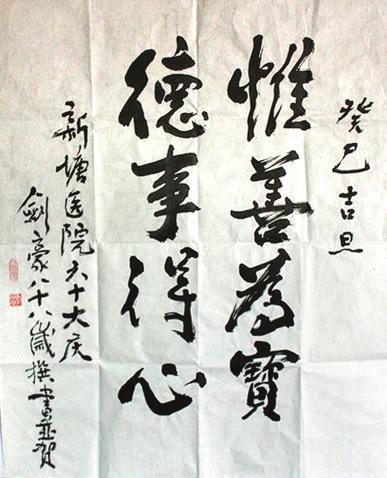 癸巳吉旦
惟善為寶
德事得心
新塘医院六十大庆
劍豪八十八歲撰書並賀